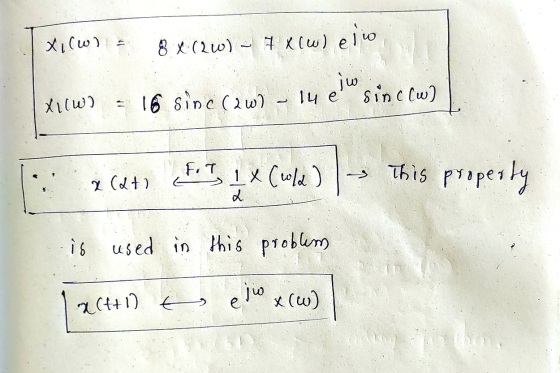 x₁(ω) = 8 x(2ω) - 7 x(ω) e^jω
x₁(ω) = 16 sinc(2ω) - 14 e^jω sinc(ω)
∵ x(αt) ⟷ F.T 1/α x(ω/α) → This property
is used in this problem
x(t+1) ⟷ e^jω x(ω)